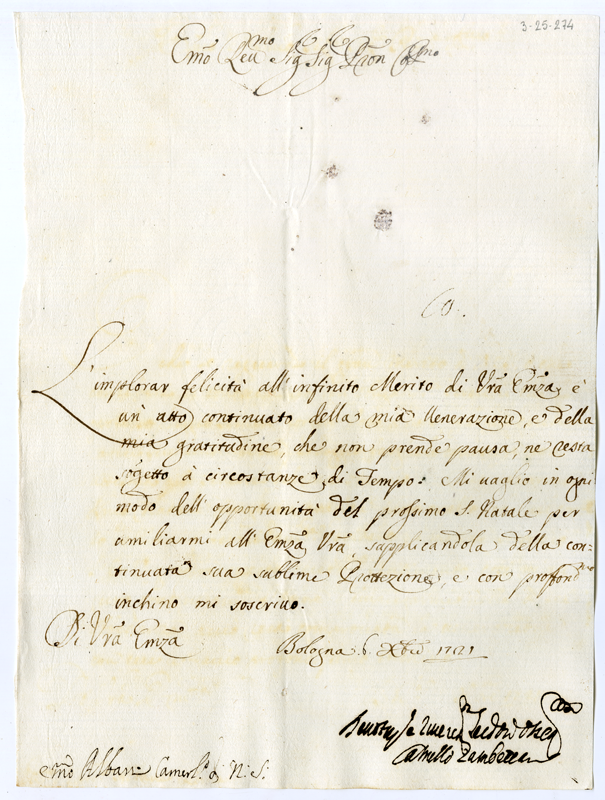 3-25-274
Emõ Reu.mo Sig. Sig. Prõn Col.mo
L'implorar felicità all'infinito Merito di Vrã Emza, è
un atto continuato della mia Venerazione, e della
mia gratitudine, che non prende pausa, ne resta
sogetto à circostanze di Tempo: Mi vaglio in ogni
modo dell'opportunità del prossimo S. Natale per
umiliarmi all'Emza Vrã, supplicandola della con=
tinuata sua sublime Protezione, e con profond.mo
inchino mi soscriuo.
Di Vrã Emza
Bologna 6. Xbre 1721
Camillo Zambeccari
emõ Albani Camerl.o di N. S.